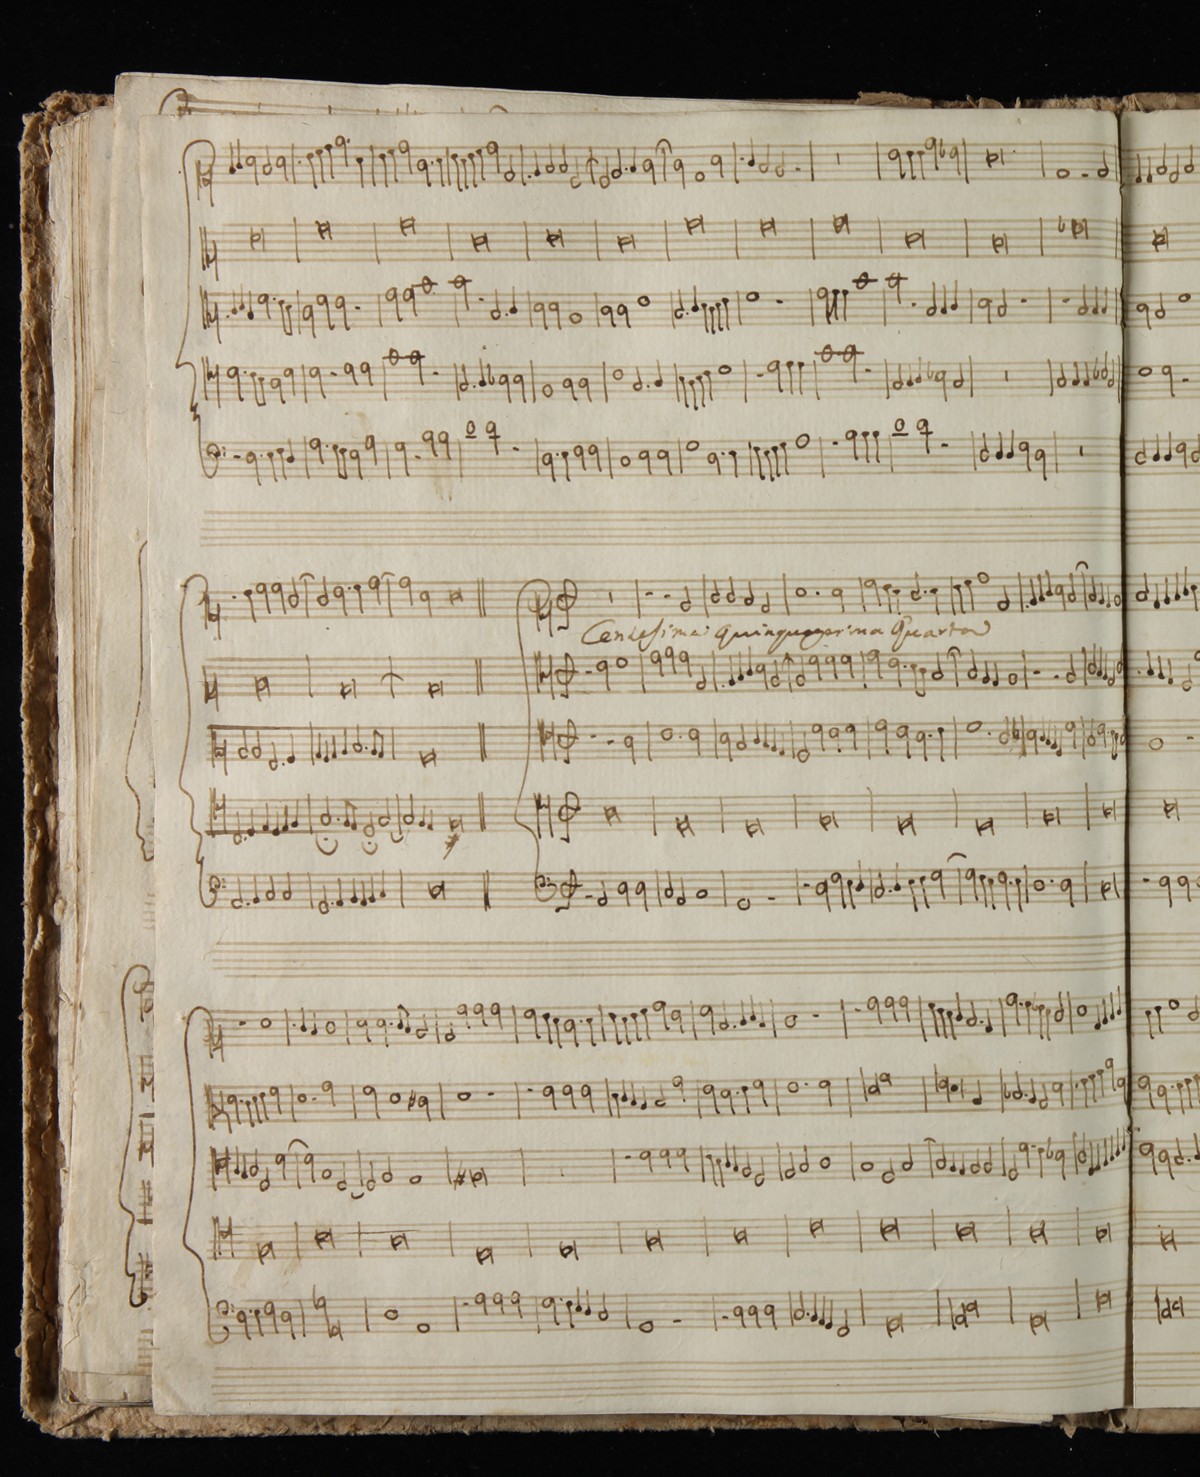 Centesima quinquagesima Quarta